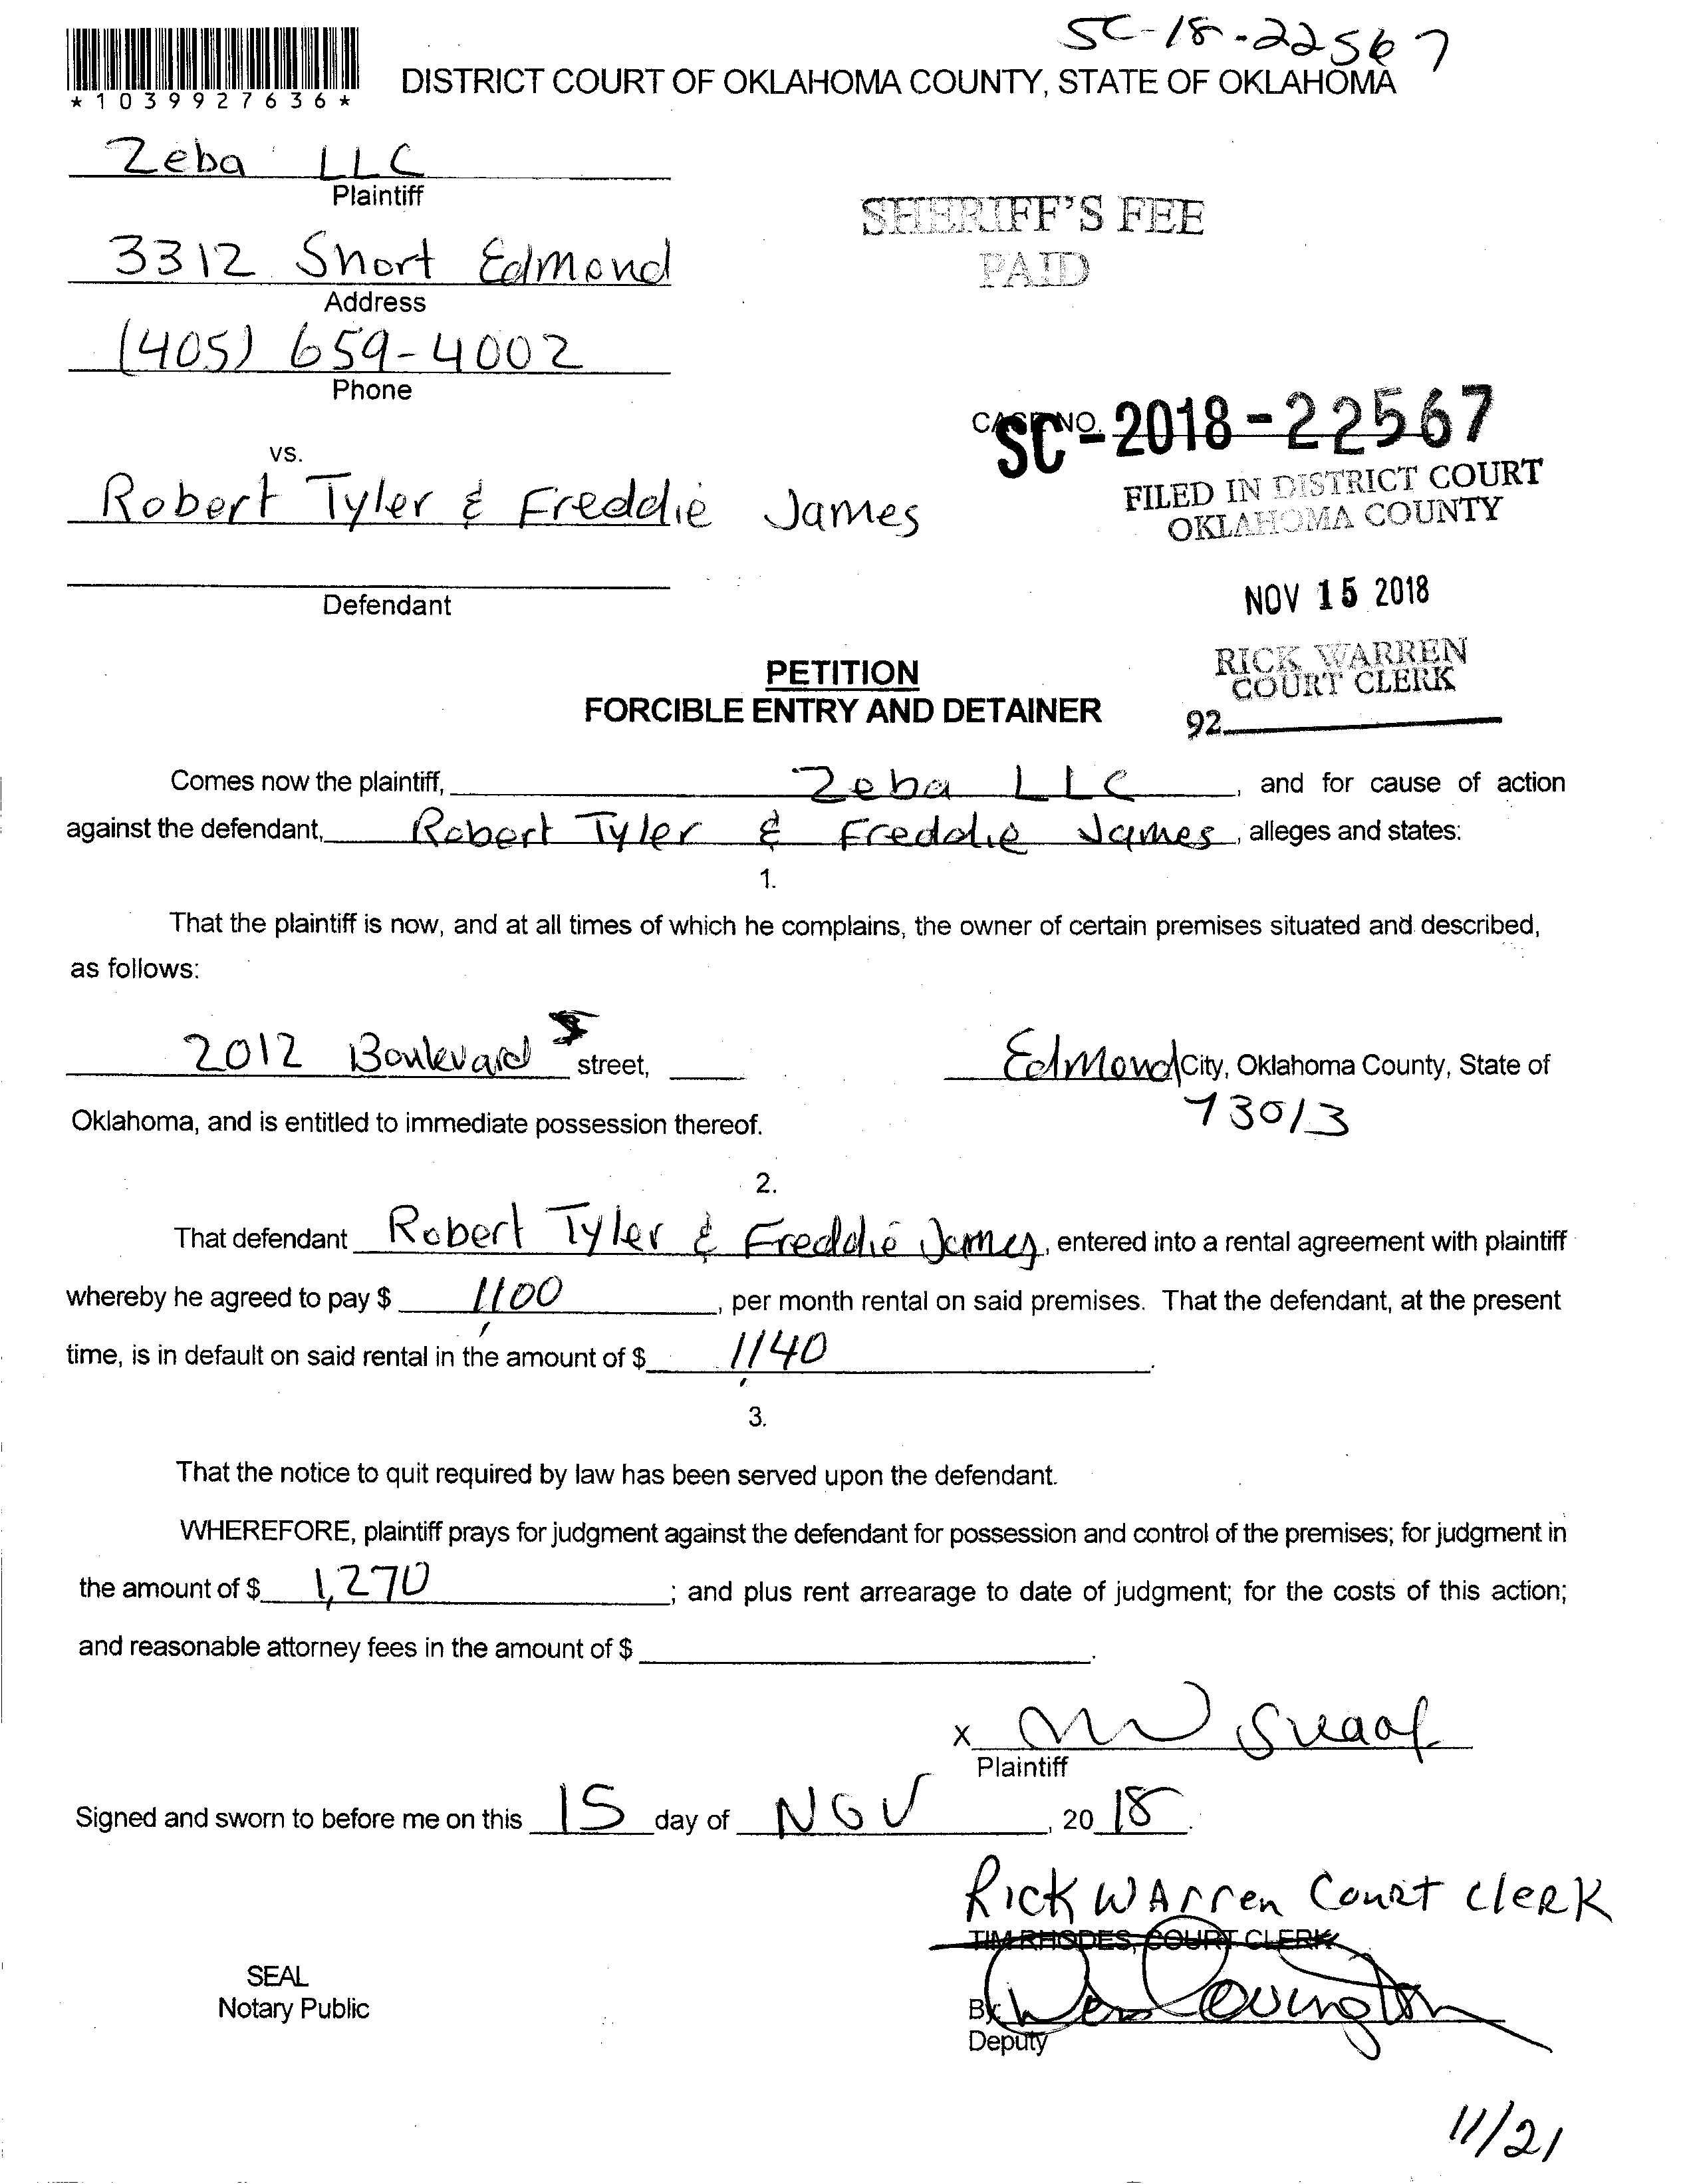 SC-18-22567
*1039927636*
DISTRICT COURT OF OKLAHOMA COUNTY, STATE OF OKLAHOMA
Zeba LLC
Plaintiff
SHERIFF'S FEE
PAID
3312 Short Edmond
Address
(405) 659-4002
Phone
CASE NO.
SC-2018-22567
FILED IN DISTRICT COURT
OKLAHOMA COUNTY
vs.
Robert Tyler & Freddie James
Defendant
NOV 15 2018
RICK WARREN
COURT CLERK
92
PETITION
FORCIBLE ENTRY AND DETAINER
Comes now the plaintiff, Zeba LLC, and for cause of action
against the defendant, Robert Tyler & Freddie James, alleges and states:
1.
That the plaintiff is now, and at all times of which he complains, the owner of certain premises situated and described,
as follows:
2012 Boulevard street, Edmond City, Oklahoma County, State of
73013
Oklahoma, and is entitled to immediate possession thereof.
2.
That defendant Robert Tyler & Freddie James, entered into a rental agreement with plaintiff
whereby he agreed to pay $ 1100, per month rental on said premises. That the defendant, at the present
time, is in default on said rental in the amount of $ 1140.
3.
That the notice to quit required by law has been served upon the defendant.
WHEREFORE, plaintiff prays for judgment against the defendant for possession and control of the premises; for judgment in
the amount of $ 1,270; and plus rent arrearage to date of judgment; for the costs of this action;
and reasonable attorney fees in the amount of $ .
X
Plaintiff
Signed and sworn to before me on this 15 day of NOV, 20 18.
Rick WArren Court Clerk
TIM RHODES, COURT CLERK
SEAL
Notary Public
By Covington
Deputy
11/21